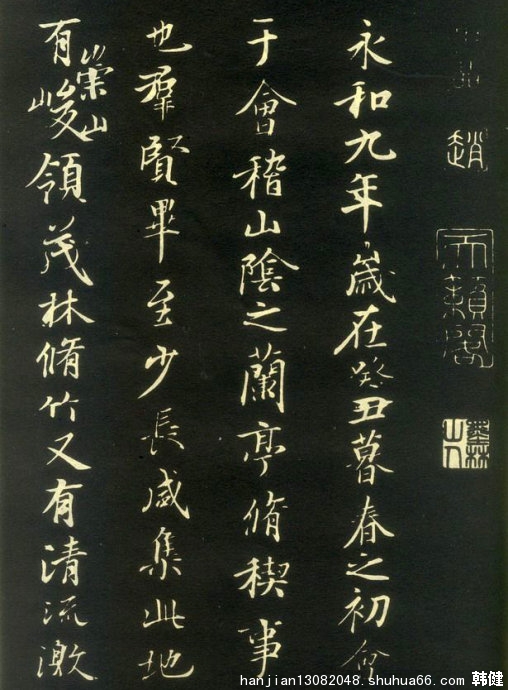 趙
天籟閣
墨林山人
永和九年歲在癸丑暮春之初會
于會稽山陰之蘭亭脩稧事
也羣賢畢至少長咸集此地
有崇山峻領茂林脩竹又有清流激
hanjian13082048.shuhua66.com 韩健